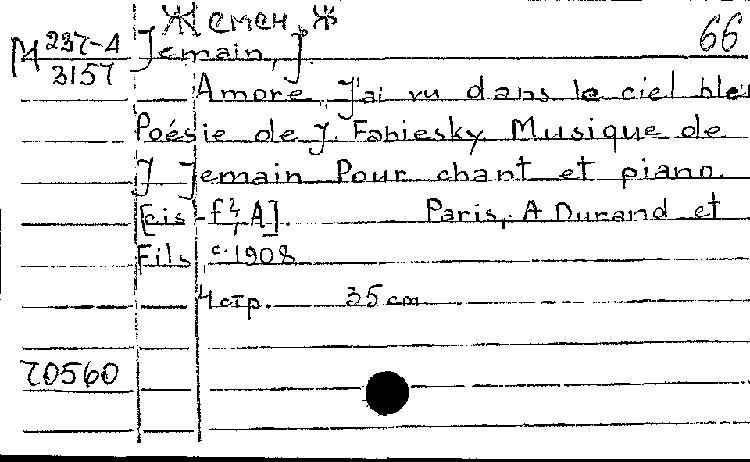 Жемен, Ж
66
М 237-4
3157
Jemain, J.
Amore. J'ai vu dans le ciel bleu
Poésie de J. Fabiesky. Musique de
J. Jemain. Pour chant et piano.
[cis-f², A]. Paris, A. Durand et
Fils, c. 1908
4 стр. 35 cm
70560